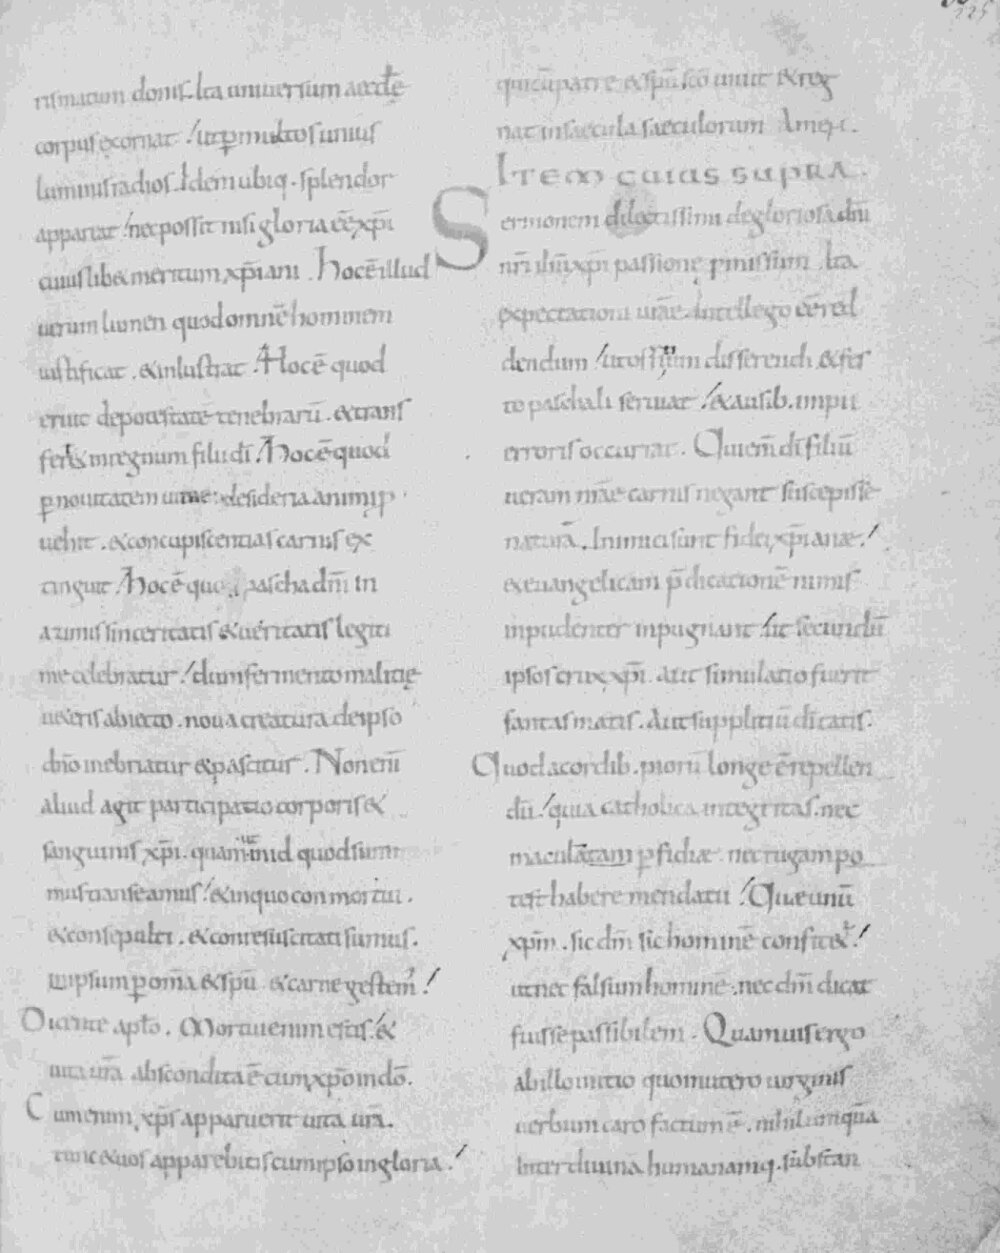 225
rismatum donis. Ita universum aeccłę
corpus exornat .' ut p multos unius
luminis radios. Idem ubiq. splendor
appareat .' nec possit nisi gloria eē xp̄i
cuiuslibet meritum xp̄iani. Hoc ē illud
uerum lumen quod omnē hominem
iustificat. & inlustrat .' Hoc ē quod
eruit de potestate tenebrarū. & trans
fert in regnum filii dī .' Hoc ē quod
p nouitatem uitae desideria animi p
uehit. & concupiscentias carnis ex
tinguit .' Hoc ē quo pascha dn̄i in
azimis sinceritatis & ueritatis legiti
me celebratur .' dum fermento malitię
ueteris abiecto. noua creatura de ipso
dn̄o inebriatur & pascitur. Non enī
aliud agit participatio corporis &
sanguinis xp̄i. quam ut in id quod sumi
mus transeamus .' & in quo conmortui.
& consepulti. & conresuscitati sumus.
ipsum p om̄a & spū & carne gestem' .'
Dicente apło. Mortui enim estis .' &
uita ur̄a abscondita ē cum xp̄o in dō.
Cum enim xp̄s apparuerit uita ur̄a.
tunc & uos apparebitis cum ipso in gloria .'
qui cū patre & spū scō uiuit & reg
nat in saecula saeculorum Amen.
ITEM CUIUS SUPRA.
Sermonem dilectissimi de gloriosa dn̄i
nr̄i ih̄u xp̄i passione pmissum. Ita
expectationi ur̄ae. Intellego eē red
dendum .' ut ossium disserendi & fes
to paschali seruiat .' & ausib. impii
erroris occurrat. Qui em̄ dī filiū
ueram nr̄ae carnis negant suscepisse
naturā. Inimici sunt fidei xp̄ianae .'
& euangelicam p̄dicationē nimis
inpudenter inpugnant .' ut secundū
ipsos crux xp̄i. Aut simulatio fuerit
fantasmatis. Aut suppliciū dī tatis.
Quod a cordib. piorū longe ē repellen
dū .' quia catholica integritas. nec
maculā tam pfidiae nec rugam po
test habere mendacii .' Quae unū
xp̄m. sic dm̄ sic hominē confitet' .'
ut nec falsum hominē. nec dm̄ dicat
fuisse passibilem. Quamuis ergo
ab illo initio quo in utero uirginis
uerbum caro factum ē. nihil umquā
Inter diuinā humanamq. substan